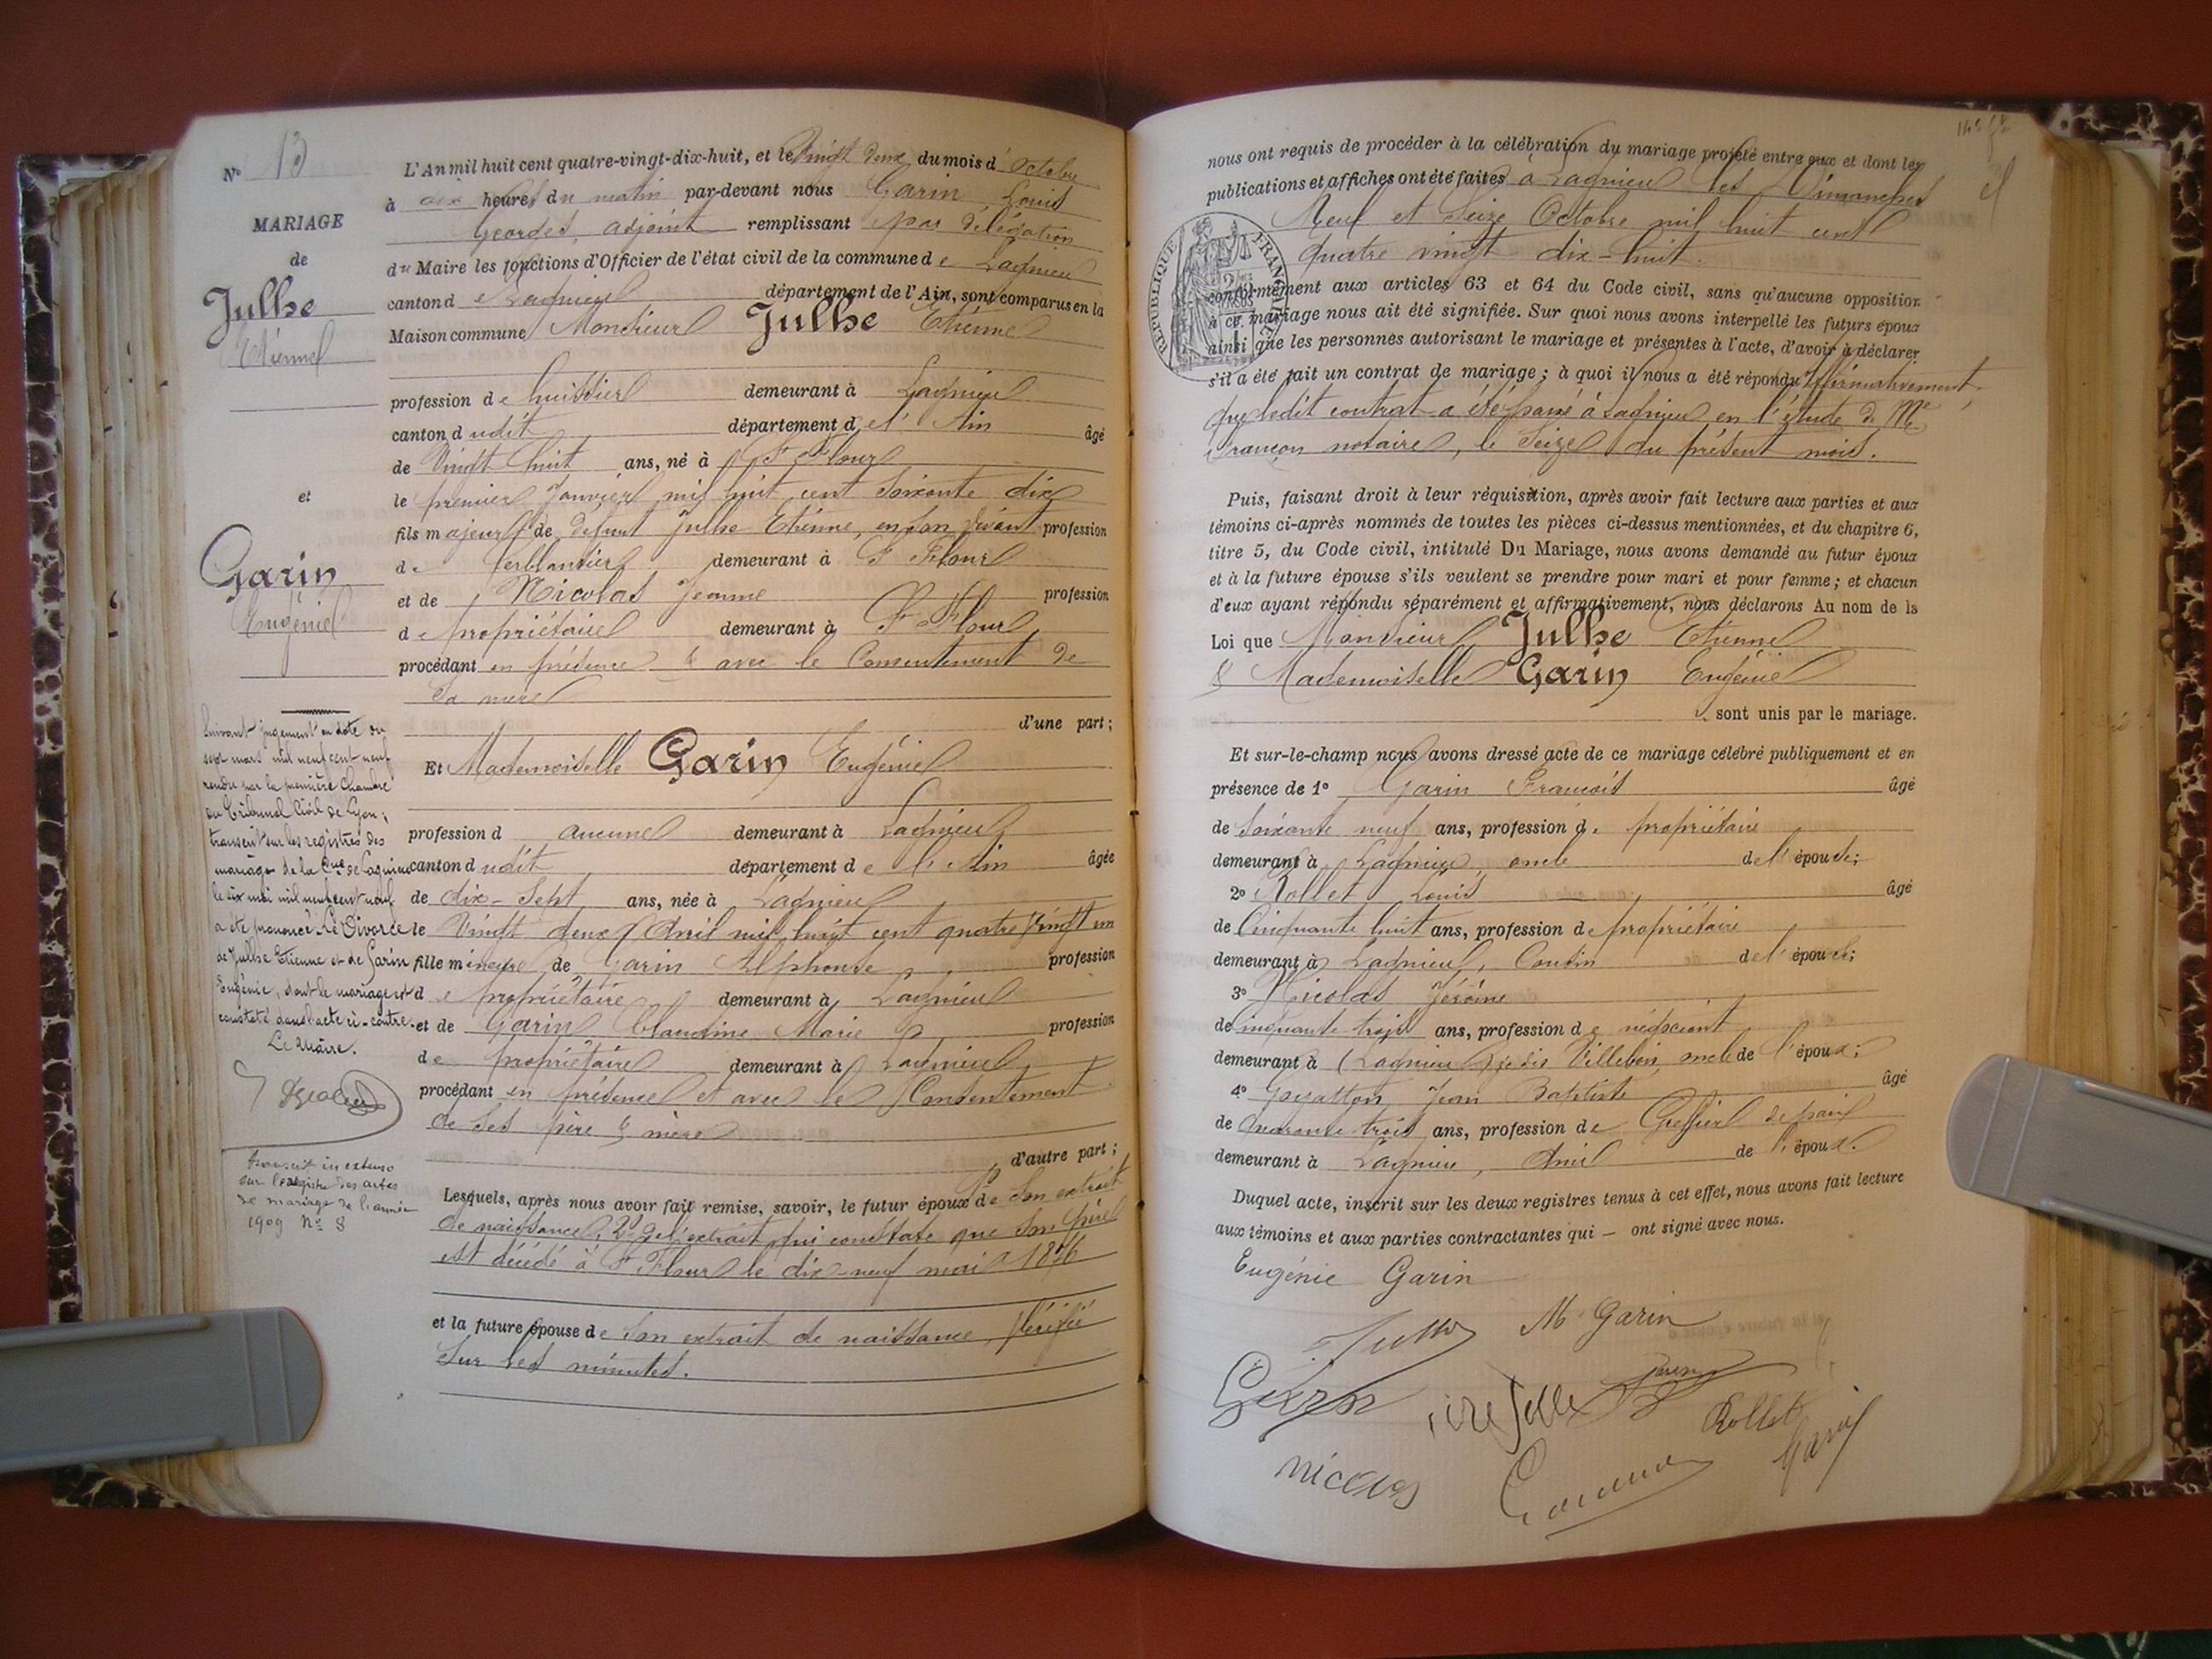 N° 13
MARIAGE
de
Julhe
Etienne
et
Garin
Eugénie
Suivant jugement en date du
sept mars mil neuf cent neuf
rendu par la première Chambre
du Tribunal Civil de Lyon,
transcrit sur les registres des
mariages de la Cne de Lagnieu
le six mai mil neuf cent neuf
a été prononcé Le Divorce
de Julhe Etienne et de Garin
Eugénie, dont le mariage est
constaté dans l'acte ci-contre.
Le Maire.
transcrit in extenso
sur le registre des actes
de mariage de l'année
1909 N° 8
L'An mil huit cent quatre-vingt-dix-huit, et le Vingt deux du mois d'Octobre
à dix heures du matin par-devant nous Garin Louis
Georges, adjoint remplissant par délégation
du Maire les fonctions d'Officier de l'état civil de la commune de Lagnieu
canton de Lagnieu département de l'Ain, sont comparus en la
Maison commune Monsieur Julhe Etienne
profession de huissier demeurant à Lagnieu
canton dudit département de l'Ain âgé
de Vingt huit ans, né à St Flour
le premier Janvier mil huit cent soixante dix
fils majeur de défunt Julhe Etienne, en son vivant profession
de ferblantier demeurant à St Flour
et de Nicolas Jeanne profession
de propriétaire demeurant à St Flour
procédant en présence & avec le Consentement de
sa mère
d'une part;
Et Mademoiselle Garin Eugénie
profession d aucune demeurant à Lagnieu
canton dudit département de l'Ain âgée
de dix-sept ans, née à Lagnieu
le Vingt deux Avril mil huit cent quatre vingt un
fille mineure de Garin Alphonse profession
de propriétaire demeurant à Lagnieu
et de Garin Claudine Marie profession
de propriétaire demeurant à Lagnieu
procédant en présence et avec le Consentement
de ses père & mère
d'autre part;
Lesquels, après nous avoir fait remise, savoir, le futur époux 1° de son extrait
de naissance, 2° de l'extrait qui constate que son père
est décédé à St Flour le dix-neuf mai 1876
et la future épouse de son extrait de naissance, vérifié
sur les minutes.
nous ont requis de procéder à la célébration du mariage projeté entre eux et dont les
publications et affiches ont été faites à Lagnieu les Dimanches
Neuf et Seize Octobre mil huit cent
quatre vingt dix-huit.
RÉPUBLIQUE FRANÇAISE
conformément aux articles 63 et 64 du Code civil, sans qu'aucune opposition
à ce mariage nous ait été signifiée. Sur quoi nous avons interpellé les futurs époux
ainsi que les personnes autorisant le mariage et présentes à l'acte, d'avoir à déclarer
s'il a été fait un contrat de mariage; à quoi il nous a été répondu affirmativement,
que ledit contrat a été passé à Lagnieu en l'étude de Me
Françon notaire, le Seize du présent mois.
Puis, faisant droit à leur réquisition, après avoir fait lecture aux parties et aux
témoins ci-après nommés de toutes les pièces ci-dessus mentionnées, et du chapitre 6,
titre 5, du Code civil, intitulé Du Mariage, nous avons demandé au futur époux
et à la future épouse s'ils veulent se prendre pour mari et pour femme; et chacun
d'eux ayant répondu séparément et affirmativement, nous déclarons Au nom de la
Loi que Monsieur Julhe Etienne
& Mademoiselle Garin Eugénie
sont unis par le mariage.
Et sur-le-champ nous avons dressé acte de ce mariage célébré publiquement et en
présence de 1° Garin François âgé
de Soixante neuf ans, profession de propriétaire
demeurant à Lagnieu, oncle de l'épouse;
2° Rollet Louis âgé
de Cinquante huit ans, profession de propriétaire
demeurant à Lagnieu, Cousin de l'épouse;
3° Nicolas Jérôme
de Cinquante trois ans, profession de négociant
demeurant à (Lagnieu) je dis Villebois, oncle de l'époux;
4° Jean Baptiste âgé
de Quarante trois ans, profession de Greffier de paix
demeurant à Lagnieu, Ami de l'époux.
Duquel acte, inscrit sur les deux registres tenus à cet effet, nous avons fait lecture
aux témoins et aux parties contractantes qui — ont signé avec nous.
Eugénie Garin
M Garin
Garin
Rollet
Nicolas
Garin